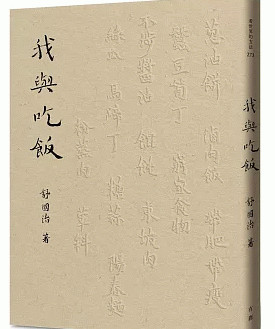 我與吃飯
舒國治 著
蔥油餅 滷肉飯 帶肥帶瘦
蠶豆筍丁 食物
醬油 餛飩 坡肉
絲瓜 丁 糖蒜 陽春麵
粉蒸肉 草料
我與吃飯
舒國治 著